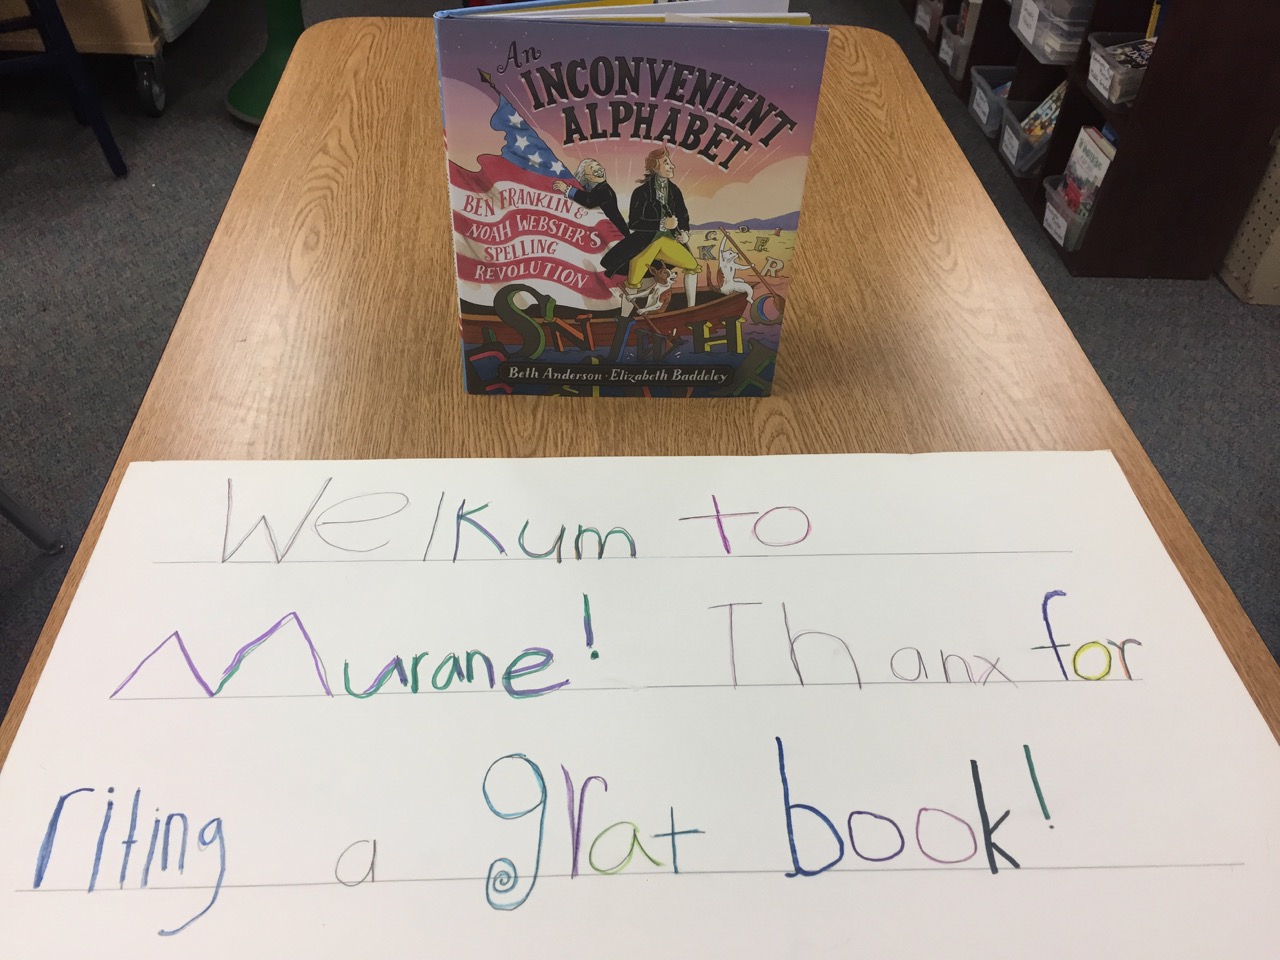 An
INCONVENIENT
ALPHABET
BEN FRANKLIN &
NOAH WEBSTER'S
SPELLING
REVOLUTION
Beth Anderson · Elizabeth Baddeley
Welkum to
Murane! Thanx for
riting a grat book!